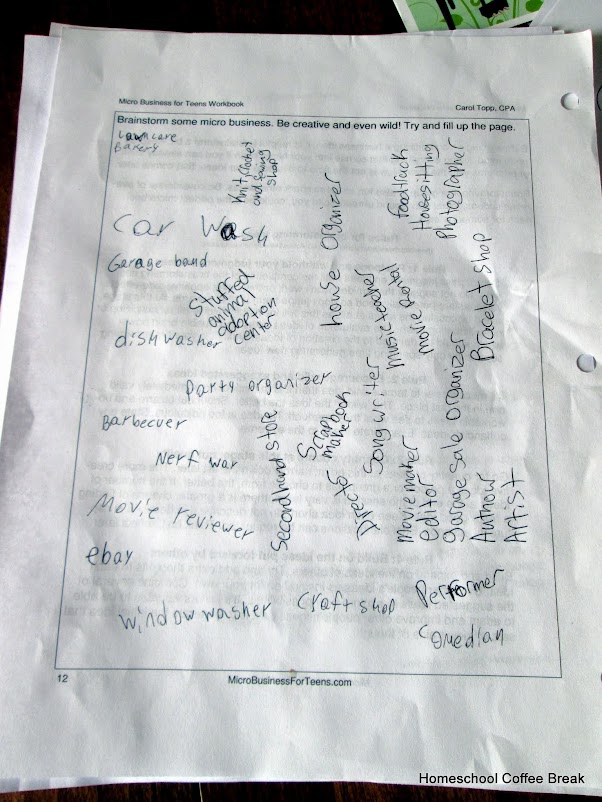 Micro Business for Teens Workbook
Carol Topp, CPA
Brainstorm some micro business. Be creative and even wild! Try and fill up the page.
Lawn care
Bakery
Knit, crochet
and sewing
shop
Car Wash
Garage band
Stuffed
animal
adoption
center
dishwasher
house organizer
foodtruck
Housesitting
Photographer
music teacher
movie rental
Bracelet shop
Party organizer
Barbecuer
Nerf war
Secondhand store
Scrapbook
maker
Director
Song writer
Movie maker
editor
Garage Sale Organizer
Authour
Artist
Movie reviewer
ebay
window washer
Craft shop
Performer
Comedian
12
MicroBusinessForTeens.com
Homeschool Coffee Break